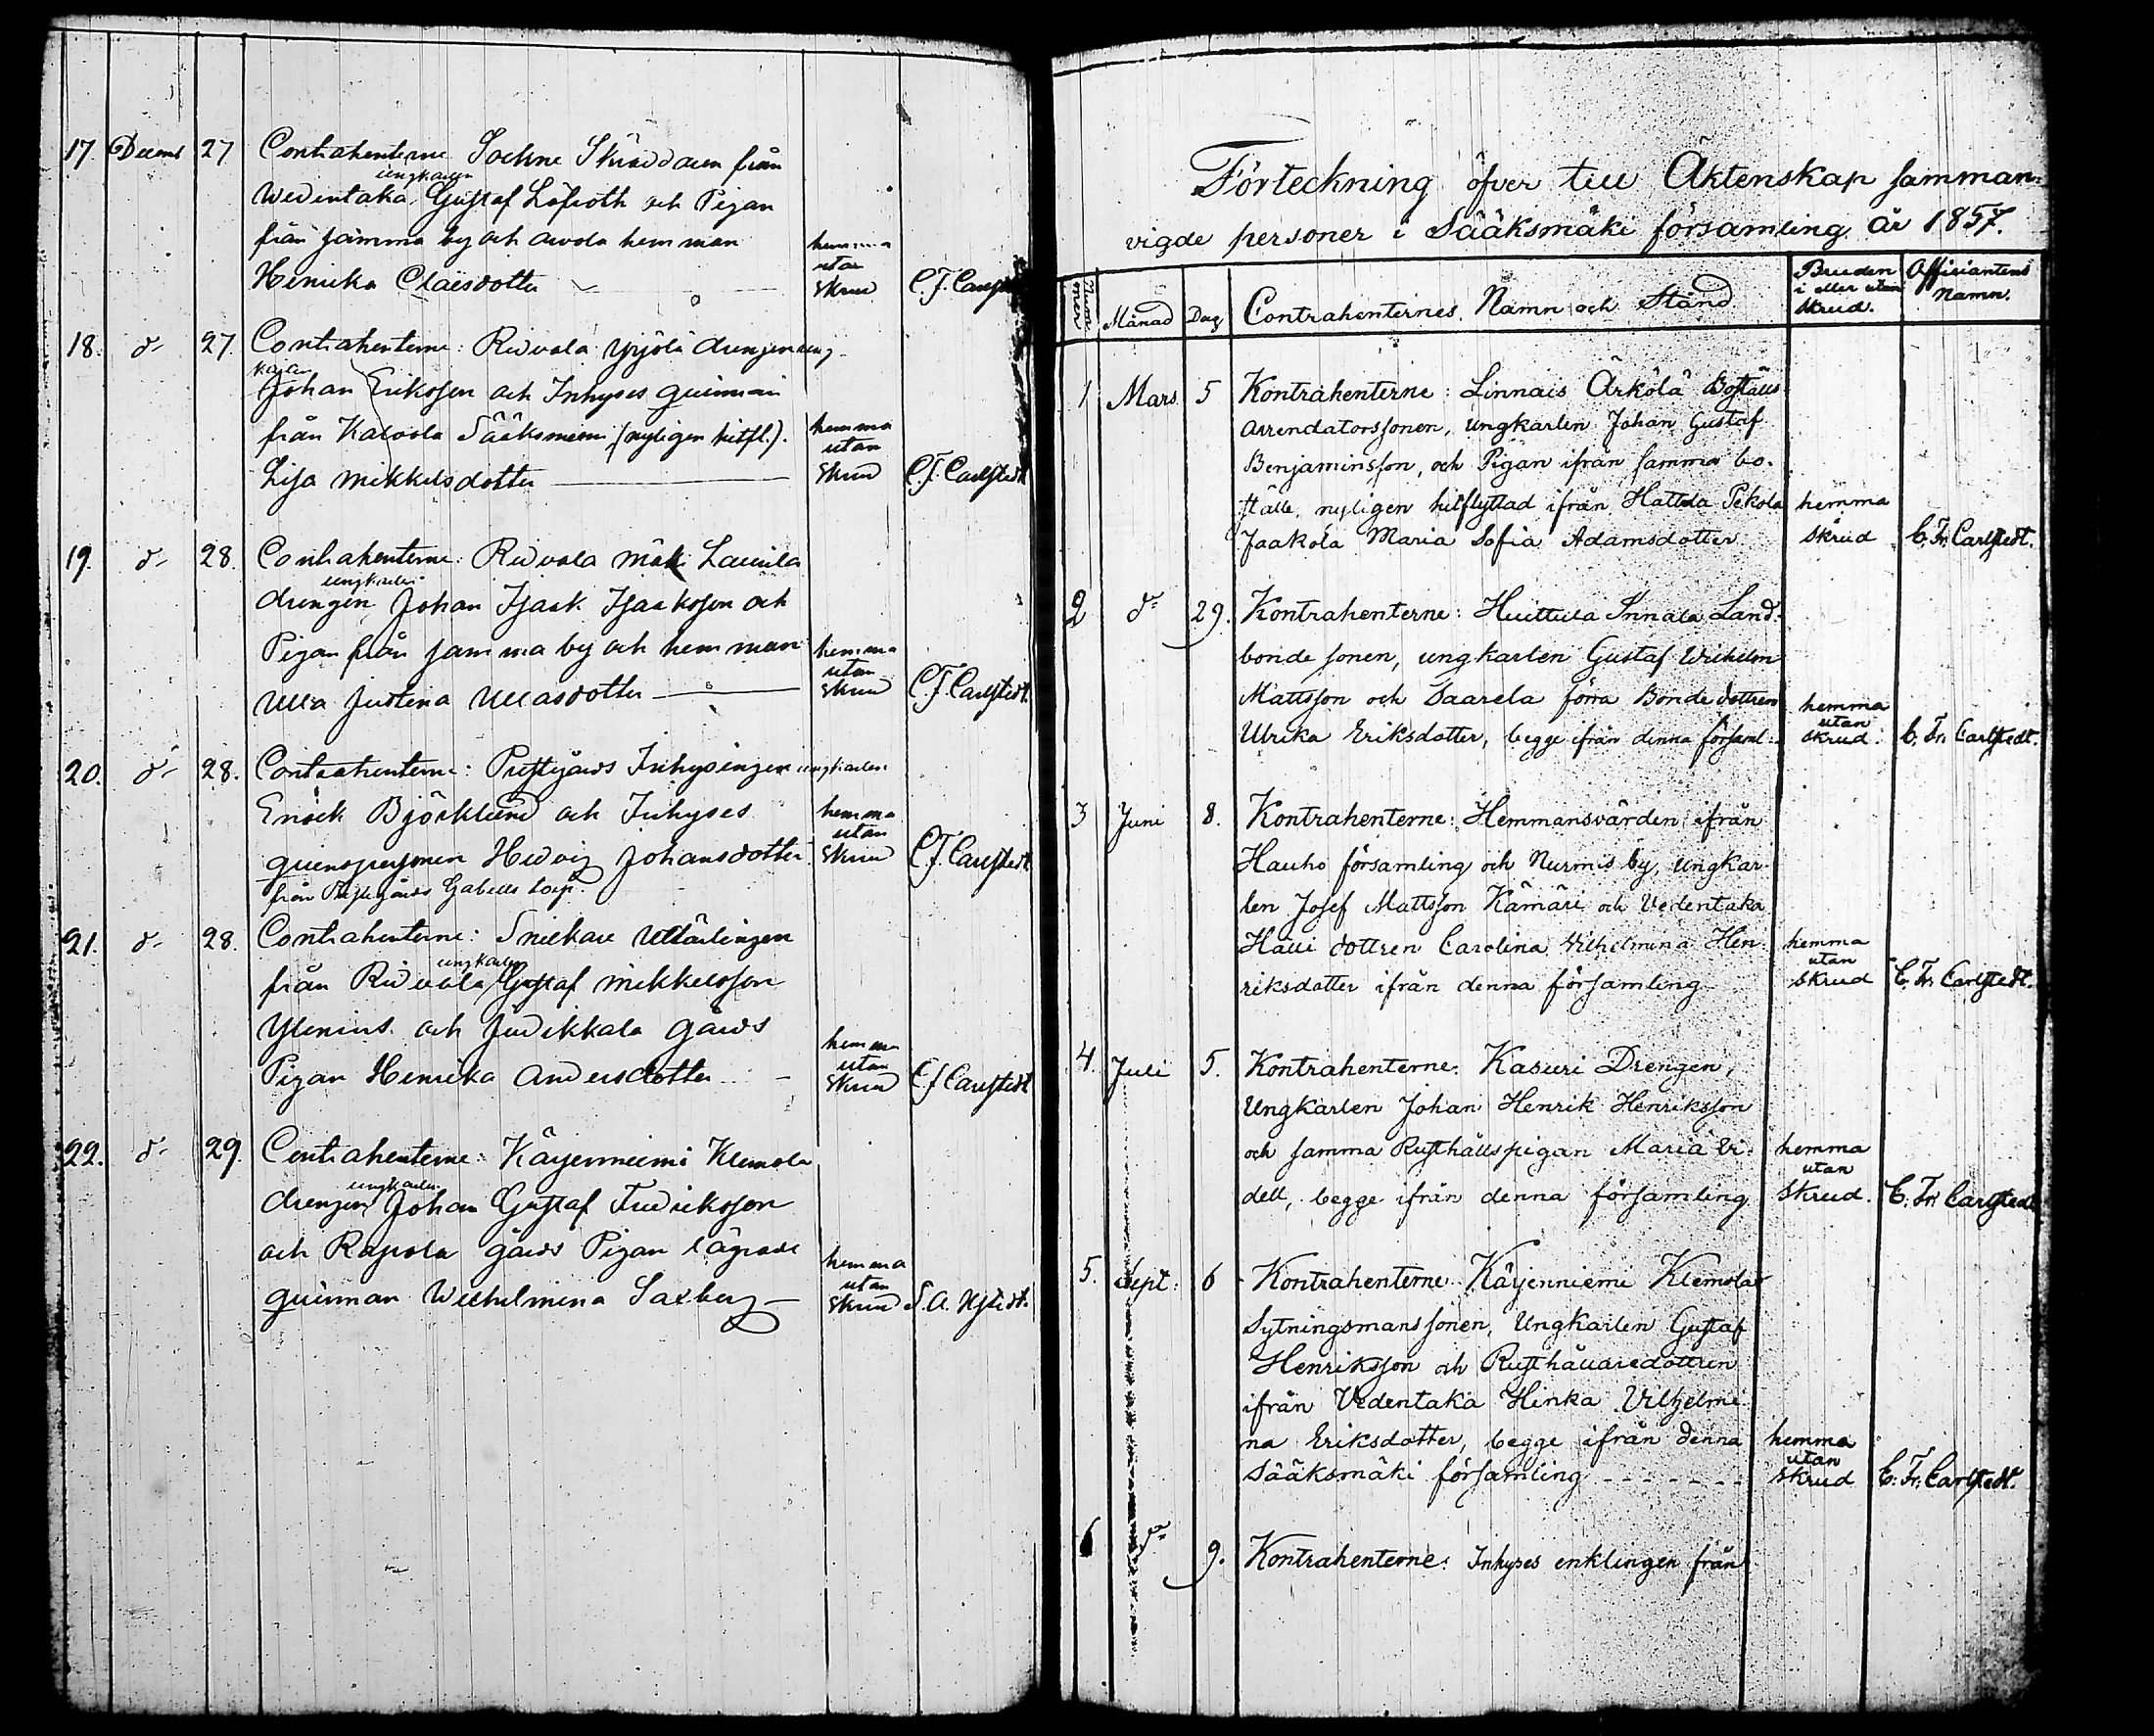 17. Decemb 27 Contrahenterne Sockne Skräddaren från
ungkarlen
Wedentaka, Gustaf Löfroth och Pigan
från samma by och Arvola hemman
Henrika Claësdotter
hemma
utan
skrud C. F. Carlstedt
18. d:o 27. Contrahenterne: Ridvala Yrjölä drengen ung-
karlen
Johan Eriksson och Inhyses quinnan
från Kalvola Sääksniemi (nyligen hitfl.).
Lisa Mikkelsdotter
hemma
utan
skrud C. F. Carlstedt
19. d:o 28. Contrahenterne: Ridvala Mäki Laurila
ungkarlen
drengen, Johan Isaak Isaaksson och
Pigan från samma by och hemman
Ulla Justina Ullasdotter
hemma
utan
skrud C. F. Carlstedt.
20. d:o 28. Contrahenterne: Prestgårds Inhysingen ungkarlen
Enock Björklund och Inhyses
quinspersonen Hedvig Johansdotter
från Prestgårds Gabells torp.
hemma
utan
skrud C. F. Carlstedt
21. d:o 28. Contrahenterne: Snickare Utlärlingen
ungkarlen
från Ridvala, Gustaf Mikkelsson
Ylenius och Judikkala Gårds
Pigan Henrika Andersdotter
hemma
utan
skrud C. F. Carlstedt
22. d:o 29. Contrahenterne: Käyenniemi Klemola
ungkarlen
drengen, Johan Gustaf Fredriksson
och Rapola gårds Pigan lägrade
quinnan Wilhelmina Saxberg
hemma
utan
skrud
Förteckning öfver till Äktenskap samman-
vigde personer i Sääksmäki församling år 1857.
Månad Dag Contrahenternes Namn och Stånd Bruden
i eller utan
skrud. Officiantens
Namn.
1 Mars 5 Kontrahenterne: Linnais Arkölä Boställs
arrendatorssonen, ungkarlen Johan Gustaf
Benjaminsson, och Pigan ifrån samma bo-
ställe, nyligen hitflyttad ifrån Hattula Pekola
Jaakola Maria Sofia Adamsdotter
hemma
skrud C. Fr. Carlstedt.
2 d:o 29. Kontrahenterne: Huittula Innala Land-
bonde sonen, ungkarlen Gustaf Wilhelm
Mattsson och Saarela förra Bonde dottren
Ulrika Eriksdotter, begge ifrån denna församl.
hemma
utan
skrud. C. Fr. Carlstedt.
3 Juni 8. Kontrahenterne: Hemmansvärden ifrån
Hauho församling och Nurmis by, ungkar-
len Josef Mattsson Kämäri och Vedentaka
Halli dottren Carolina Vilhelmina Hen-
riksdotter ifrån denna församling
hemma
utan
skrud C. Fr. Carlstedt.
4. Juli 5. Kontrahenterne: Kasuri Drengen,
Ungkarlen Johan Henrik Henriksson
och samma Rusthållspigan Maria Vi-
dell, begge ifrån denna församling
hemma
utan
skrud. C. Fr. Carlstedt
5. Sept: 6 Kontrahenterne: Käyenniemi Klemola
Sytningsmanssonen, Ungkarlen Gustaf
Henriksson och Rusthållaredottren
ifrån Vedentaka Hinka Vilhelmi-
na Eriksdotter, begge ifrån denna
Sääksmäki församling
hemma
utan
skrud C. Fr. Carlstedt.
6 d:o 9. Kontrahenterne: Inhyses enklingen från